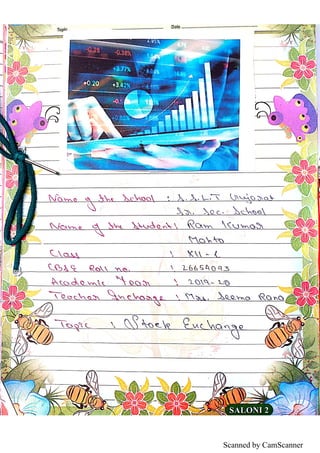 Topic
Date
-0.28 -0.38%
+3.77%
+0.20 +3.42%
Name of the School : S.S.L.T Gujarat
Sr. Sec. School
Name of the Student : Ram Kumar
Mahto
Class : XII-C
CBSE Roll no. : 26654093
Academic Year : 2019-20
Teacher Incharge : Mrs. Seema Rana
Topic : Stock Exchange
SALONI 2
Scanned by CamScanner